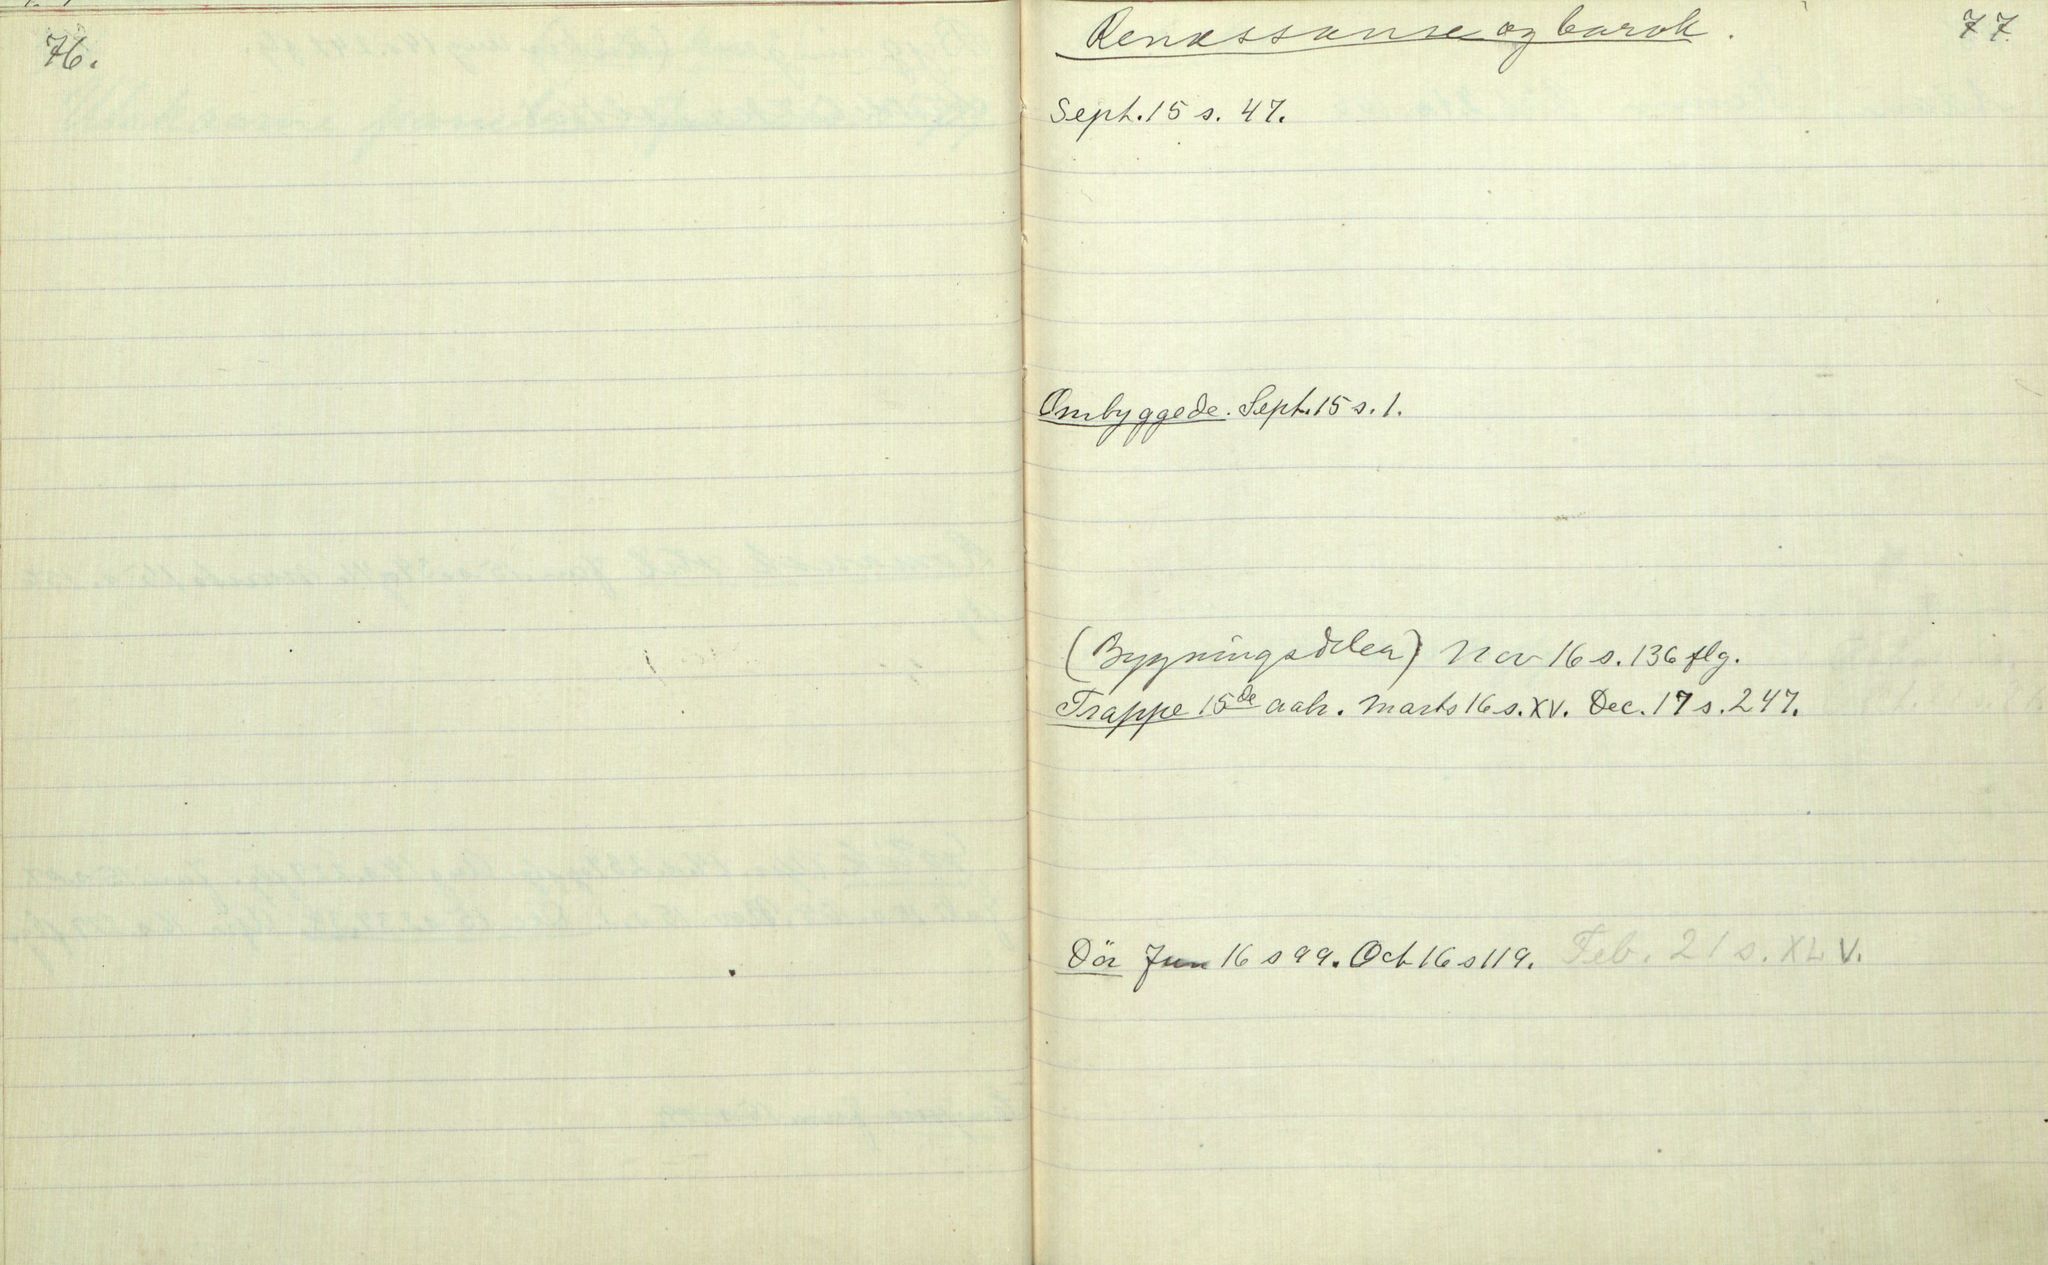 76.
Renæssanse og barok.
77
Sept. 15 s. 47.
Ombyggede. Sept. 15 s. 1.
(Bygningsdeler) Nov 16 s. 136 flg.
Trappe 15de aah. Marts 16 s. XV. Dec. 17 s. 247.
Dör Jun 16 s 99. Oct 16 s 119. Feb. 21 s. XLV.